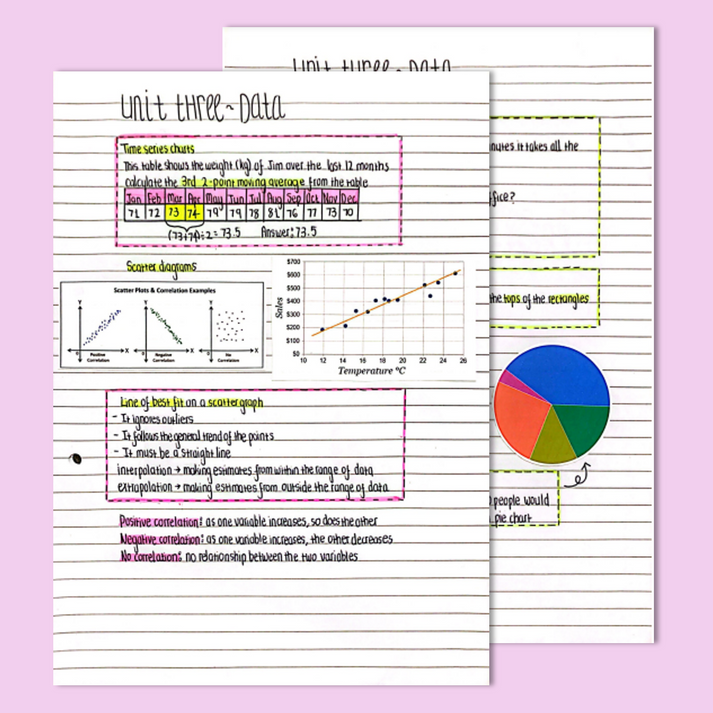 Unit three ~ Data
Time series charts
This table shows the weight (kg) of Jim over the last 12 months
calculate the 3rd 2-point moving average from the table
Jan Feb Mar Apr May Jun Jul Aug Sep Oct Nov Dec
71 72 73 74 79 79 78 81 76 77 73 70
(73+74)÷2=73.5 Answer: 73.5
Scatter diagrams
Scatter Plots & Correlation Examples
Y Y Y
X X X
Positive Correlation Negative Correlation No Correlation
Sales
$700
$600
$500
$400
$300
$200
$100
$0
10 12 14 16 18 20 22 24 26
Temperature °C
Line of best fit on a scatter graph
- It ignores outliers
- It follows the general trend of the points
- It must be a straight line
interpolation → making estimates from within the range of data
extrapolation → making estimates from outside the range of data
Positive correlation: as one variable increases, so does the other
Negative correlation: as one variable increases, the other decreases
No correlation: no relationship between the two variables
Unit three ~ Data
nutes it takes all the
fice?
the tops of the rectangles
people would
pie chart